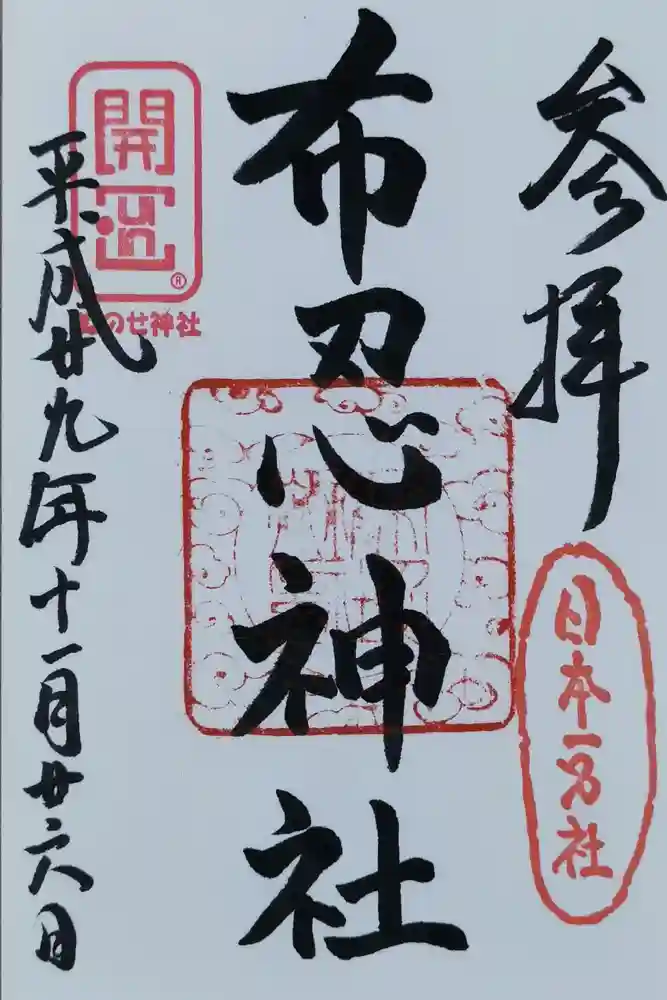 参拝
日本一社
布忍神社
開運
®
のせ神社
平成廿九年十一月廿六日